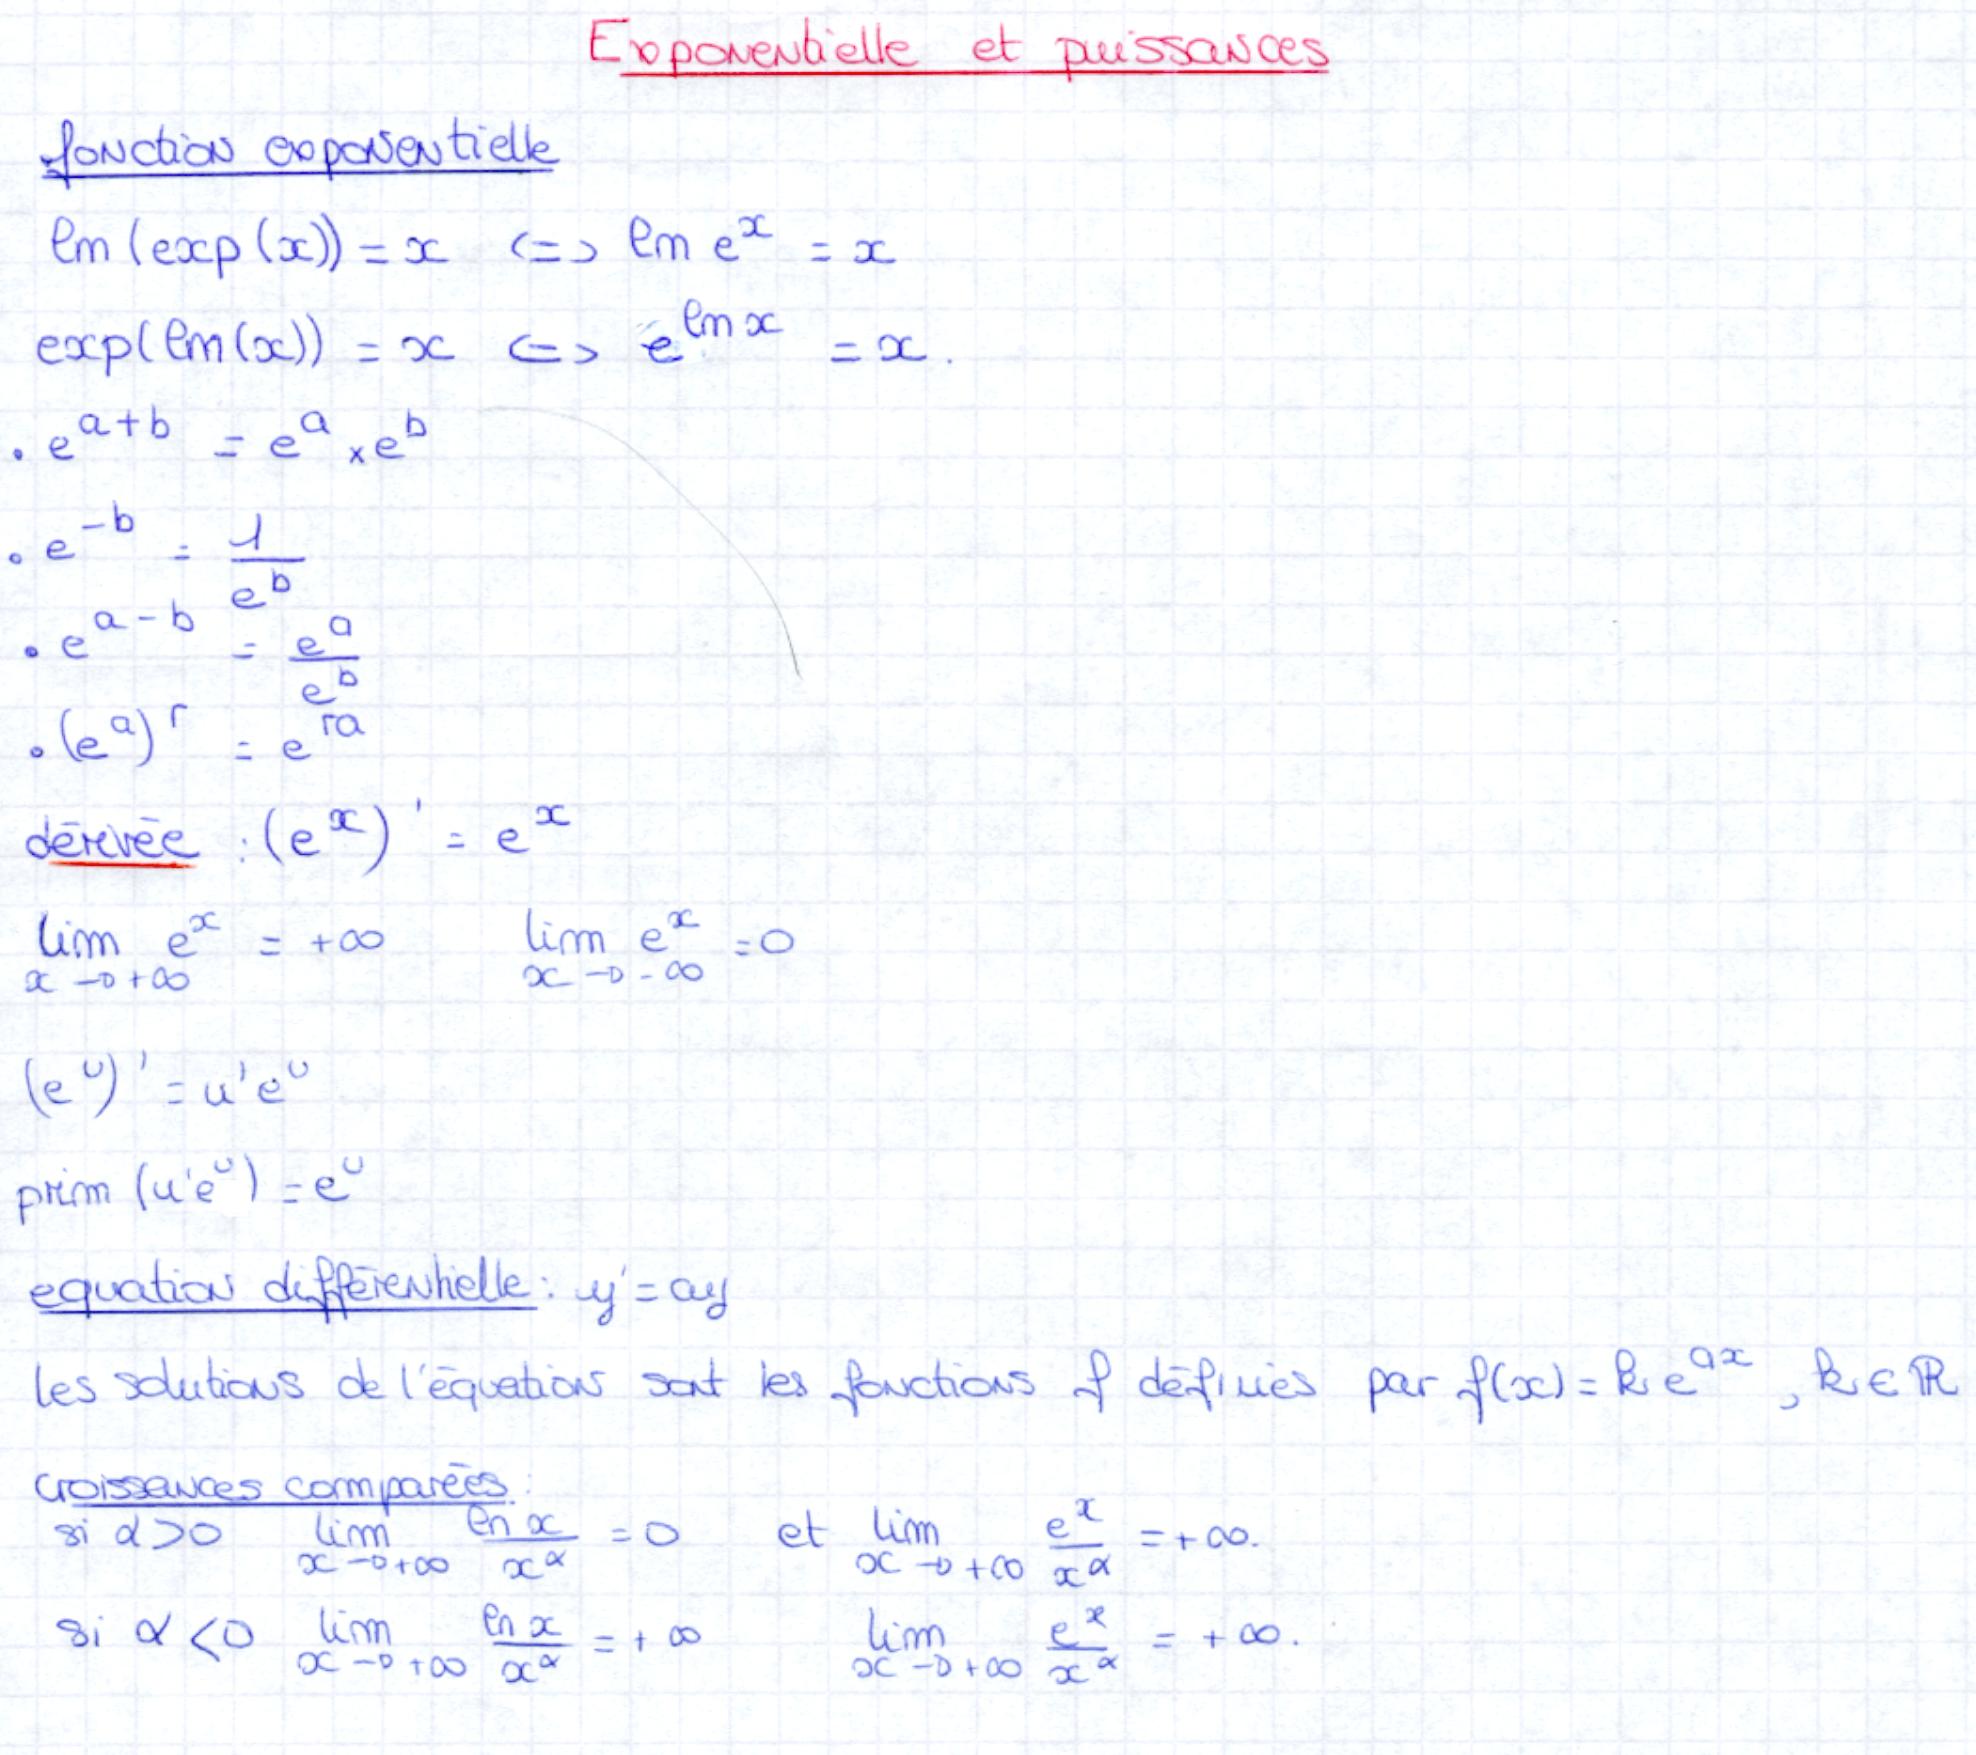 Exponentielle et puissances
fonction exponentielle
ln (exp (x)) = x <=> ln e^x = x
exp(ln(x)) = x <=> e^{ln x} = x.
• e^{a+b} = e^a × e^b
• e^{-b} = \frac{1}{e^b}
• e^{a-b} = \frac{e^a}{e^b}
• (e^a)^r = e^{ra}
dérivée : (e^x)' = e^x
\lim_{x→+∞} e^x = +∞ \lim_{x→-∞} e^x = 0
(e^u)' = u'e^u
prim (u'e^u) = e^u
equation différentielle : y' = ay
les solutions de l'équation sont les fonctions f définies par f(x) = k e^{ax}, k ∈ ℝ
croissances comparées :
si α > 0 \lim_{x→+∞} \frac{ln x}{x^α} = 0 et \lim_{x→+∞} \frac{e^x}{x^α} = +∞.
si α < 0 \lim_{x→+∞} \frac{ln x}{x^α} = +∞ \lim_{x→+∞} \frac{e^x}{x^α} = +∞.